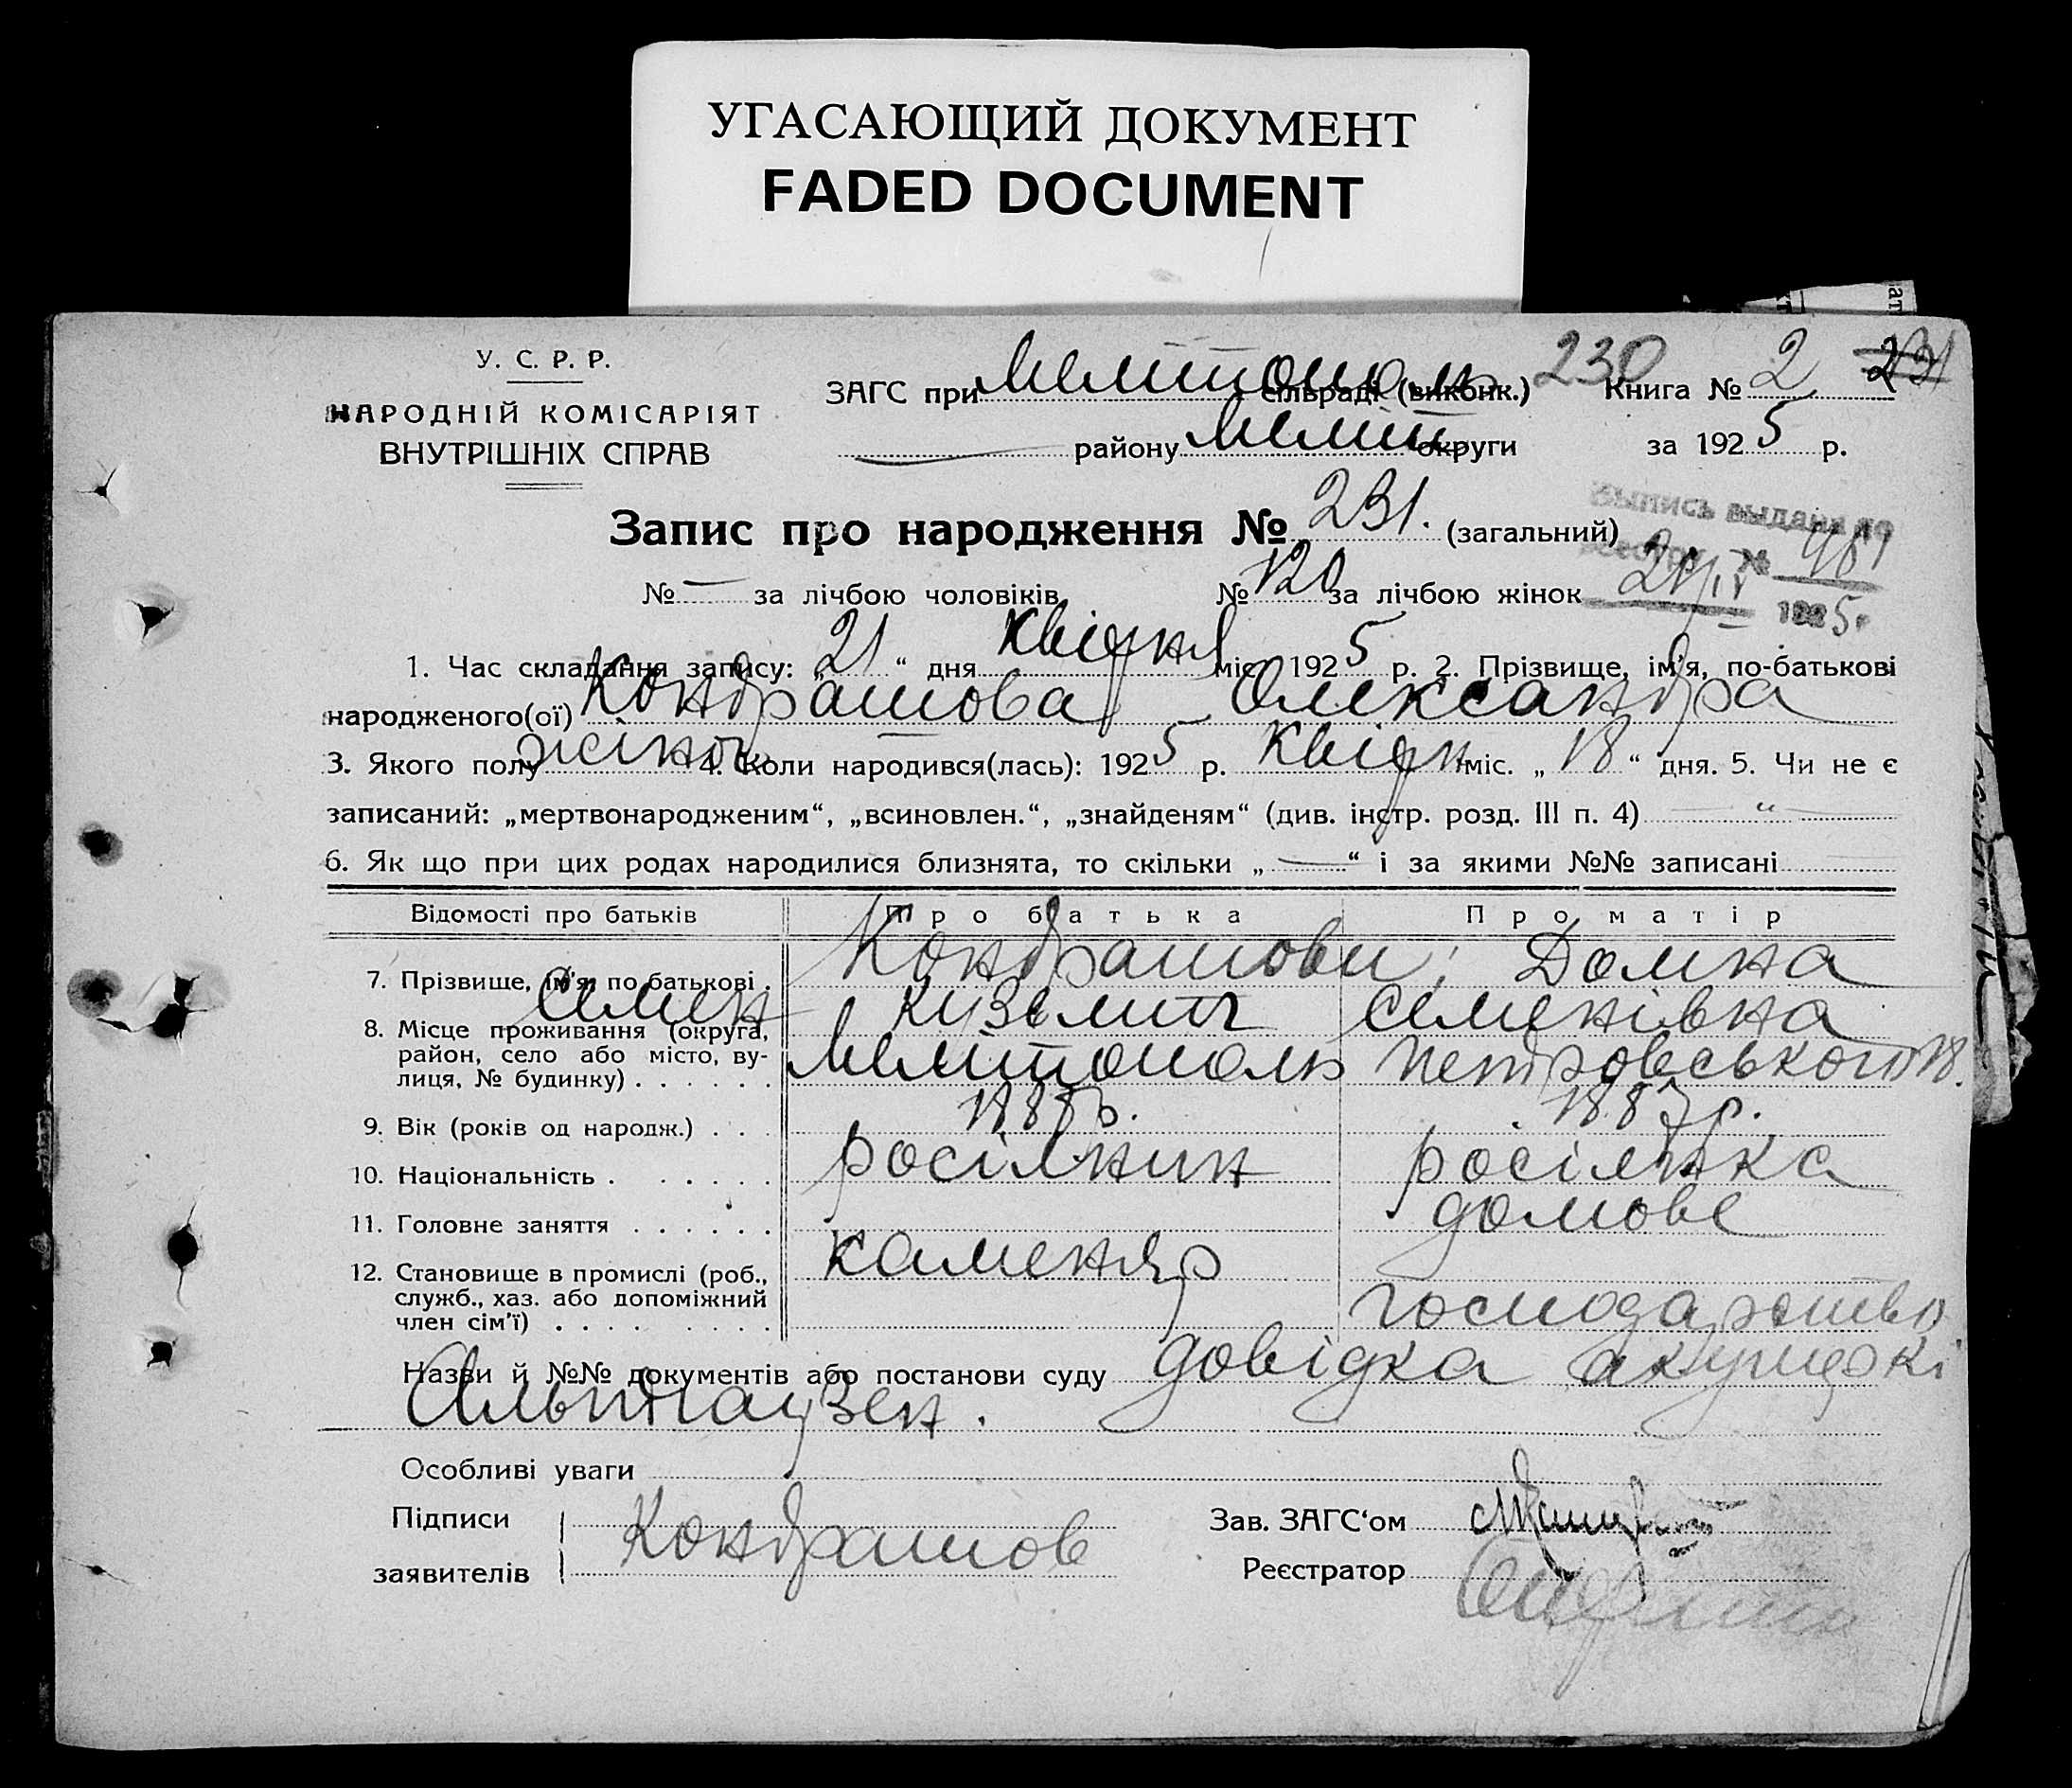 УГАСАЮЩИЙ ДОКУМЕНТ
FADED DOCUMENT
У. С. Р. Р.
НАРОДНІЙ КОМІСАРІЯТ
ВНУТРІШНІХ СПРАВ
ЗАГС при Мелітополь сільраді (виконк.) 230 Книга № 2 231
району Меліт округи за 1925 р.
Запис про народження № 231. (загальний)
Выпись выдана по
реестру № 981
21/IV 1925 г
№ — за лічбою чоловіків № 120 за лічбою жінок
1. Час складання запису: „21“ дня Квітня міс. 1925 р. 2. Прізвище, ім'я, по-батькові
народженого(ої) Кондрашова Олександра
3. Якого полу жіноч 4. Коли народився(лась): 1925 р. Квітн міс. „18“ дня. 5. Чи не є
записаний: „мертвонародженим“, „всиновлен.“, „знайденям“ (див. інстр. розд. III п. 4) — “ —
6. Як що при цих родах народилися близнята, то скільки „—“ і за якими №№ записані
Відомості про батьків Про батька Про матір
Кондрашови; Домна
7. Прізвище, ім'я, по батькові .
Семен Кузьмич Семенівна
8. Місце проживання (округа,
район, село або місто, ву-
лиця, № будинку) . . . . . . Мелітополь Петровського 18.
9. Вік (років од народж.) . . . 1887р.
10. Національність . . . . . . росіянин росіянка
11. Головне заняття . . . . . . домове
каменяр
12. Становище в промислі (роб.,
служб., хаз. або допоміжний
член сім'ї) . . . . . . . . господарство
Назви й №№ документів або постанови суду довідка акушерки
Альтгаузен.
Особливі уваги
Підписи
заявителів Кондрашов
Зав. ЗАГС‘ом
Реєстратор